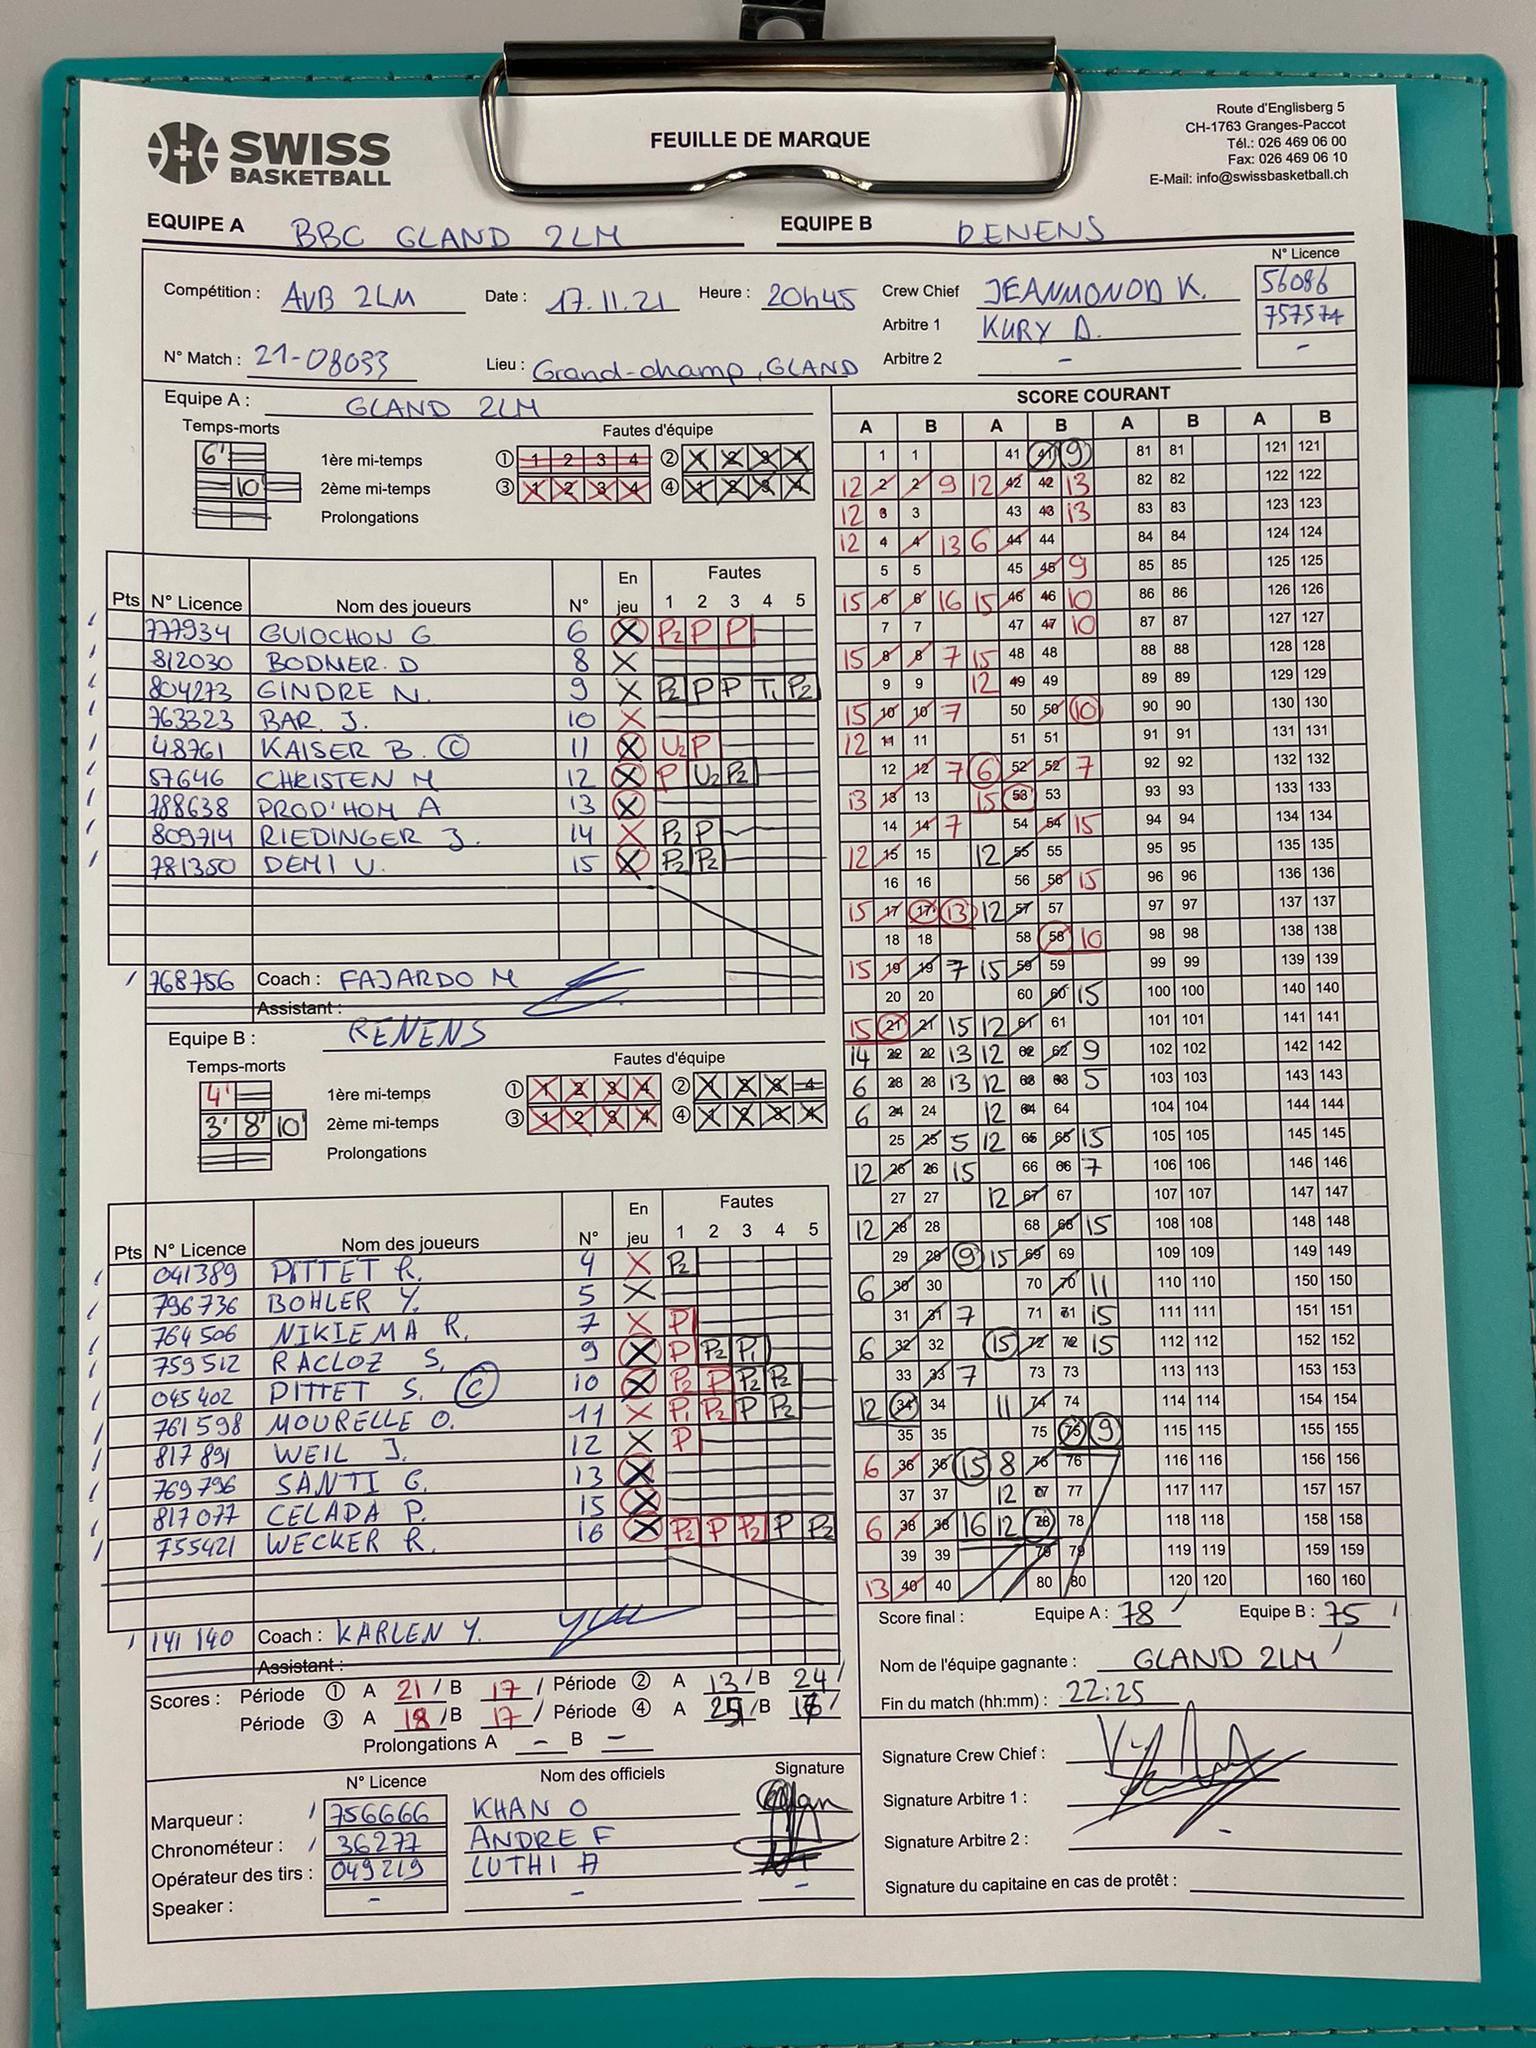 SWISS
BASKETBALL
FEUILLE DE MARQUE
Route d'Englisberg 5
CH-1763 Granges-Paccot
Tél.: 026 469 06 00
Fax: 026 469 06 10
E-Mail: info@swissbasketball.ch
EQUIPE A BBC GLAND 2LM EQUIPE B RENENS
N° Licence
Compétition : AVB 2LM Date : 17.11.21 Heure : 20h45 Crew Chief JEANMONOD K. 56086
Arbitre 1 KURY D. 757574
N° Match : 21-08033 Lieu : Grand-champ, GLAND Arbitre 2 - -
Equipe A : GLAND 2LM
Temps-morts Fautes d'équipe
6' 1ère mi-temps ① 1 2 3 4 ② 1 2 3 4
10' 2ème mi-temps ③ 1 2 3 4 ④ 1 2 3 4
Prolongations
Pts N° Licence Nom des joueurs N° En jeu Fautes 1 2 3 4 5
777934 GUIOCHON G 6 X P2 P P
812030 BODMER. D 8 X
804273 GINDRE N. 9 X P2 P P T1 P2
763323 BAR. J. 10 X
48761 KAISER B. C 11 X U2 P
57646 CHRISTEN M 12 X P U2 P2
788638 PROD'HOM A 13 X
809714 RIEDINGER J. 14 X P2 P
781350 DEMI U. 15 X P2 P2
768756 Coach : FAJARDO M
Assistant :
Equipe B : RENENS
Temps-morts Fautes d'équipe
4' 1ère mi-temps ① 1 2 3 4 ② 1 2 3 4
3' 8' 10' 2ème mi-temps ③ 1 2 3 4 ④ 1 2 3 4
Prolongations
Pts N° Licence Nom des joueurs N° En jeu Fautes 1 2 3 4 5
041389 PITTET R. 4 X P2
796736 BOHLER Y. 5 X
764506 NIKIEMA R. 7 X P
759512 RACLOZ S. 9 X P P2 P1
045402 PITTET S. C 10 X P2 P P2 P2
761598 MOURELLE O. 11 X P1 P2 P P2
817891 WEIL J. 12 X P
769796 SANTI G. 13 X
817077 CELADA P. 15 X
755421 WECKER R. 16 X P2 P P2 P P2
141 140 Coach : KARLEN Y.
Assistant :
Scores : Période ① A 21 / B 17 / Période ② A 13 / B 24 /
Période ③ A 18 / B 17 / Période ④ A / B
Prolongations A - B -
N° Licence Nom des officiels Signature
Marqueur : 756666 KHAN O
Chronométeur : 36277 ANDRE F
Opérateur des tirs : 049219 LUTHI A
Speaker : - - -
SCORE COURANT
A B A B A B A B
1 1 41 41 9 81 81 121 121
12 2 2 9 12 42 42 13 82 82 122 122
12 3 3 43 43 13 83 83 123 123
12 4 4 13 6 44 44 84 84 124 124
5 5 45 45 9 85 85 125 125
15 6 6 16 15 46 46 10 86 86 126 126
7 7 47 47 10 87 87 127 127
15 8 8 7 15 48 48 88 88 128 128
9 9 12 49 49 89 89 129 129
15 10 10 7 50 50 10 90 90 130 130
12 11 11 51 51 91 91 131 131
12 12 7 6 52 52 7 92 92 132 132
13 13 13 15 53 53 93 93 133 133
14 14 7 54 54 15 94 94 134 134
12 15 15 12 55 55 95 95 135 135
16 16 56 56 15 96 96 136 136
15 17 17 13 12 57 57 97 97 137 137
18 18 58 58 10 98 98 138 138
15 19 19 7 15 59 59 99 99 139 139
20 20 60 60 15 100 100 140 140
15 21 21 15 12 61 61 101 101 141 141
14 22 22 13 12 62 62 9 102 102 142 142
6 23 23 13 12 63 63 5 103 103 143 143
6 24 24 12 64 64 104 104 144 144
25 25 5 12 65 65 15 105 105 145 145
12 26 26 15 66 66 7 106 106 146 146
27 27 12 67 67 107 107 147 147
12 28 28 68 68 15 108 108 148 148
29 29 9 15 69 69 109 109 149 149
6 30 30 70 70 11 110 110 150 150
31 31 7 71 71 15 111 111 151 151
6 32 32 15 72 72 15 112 112 152 152
33 33 7 73 73 113 113 153 153
12 34 34 11 74 74 114 114 154 154
35 35 75 75 9 115 115 155 155
6 36 36 15 8 76 76 116 116 156 156
37 37 12 77 77 117 117 157 157
6 38 38 16 12 78 78 118 118 158 158
39 39 79 79 119 119 159 159
13 40 40 80 80 120 120 160 160
Score final : Equipe A : 78 Equipe B : 75
Nom de l'équipe gagnante : GLAND 2LM
Fin du match (hh:mm) : 22:25
Signature Crew Chief :
Signature Arbitre 1 :
Signature Arbitre 2 : -
Signature du capitaine en cas de protêt :